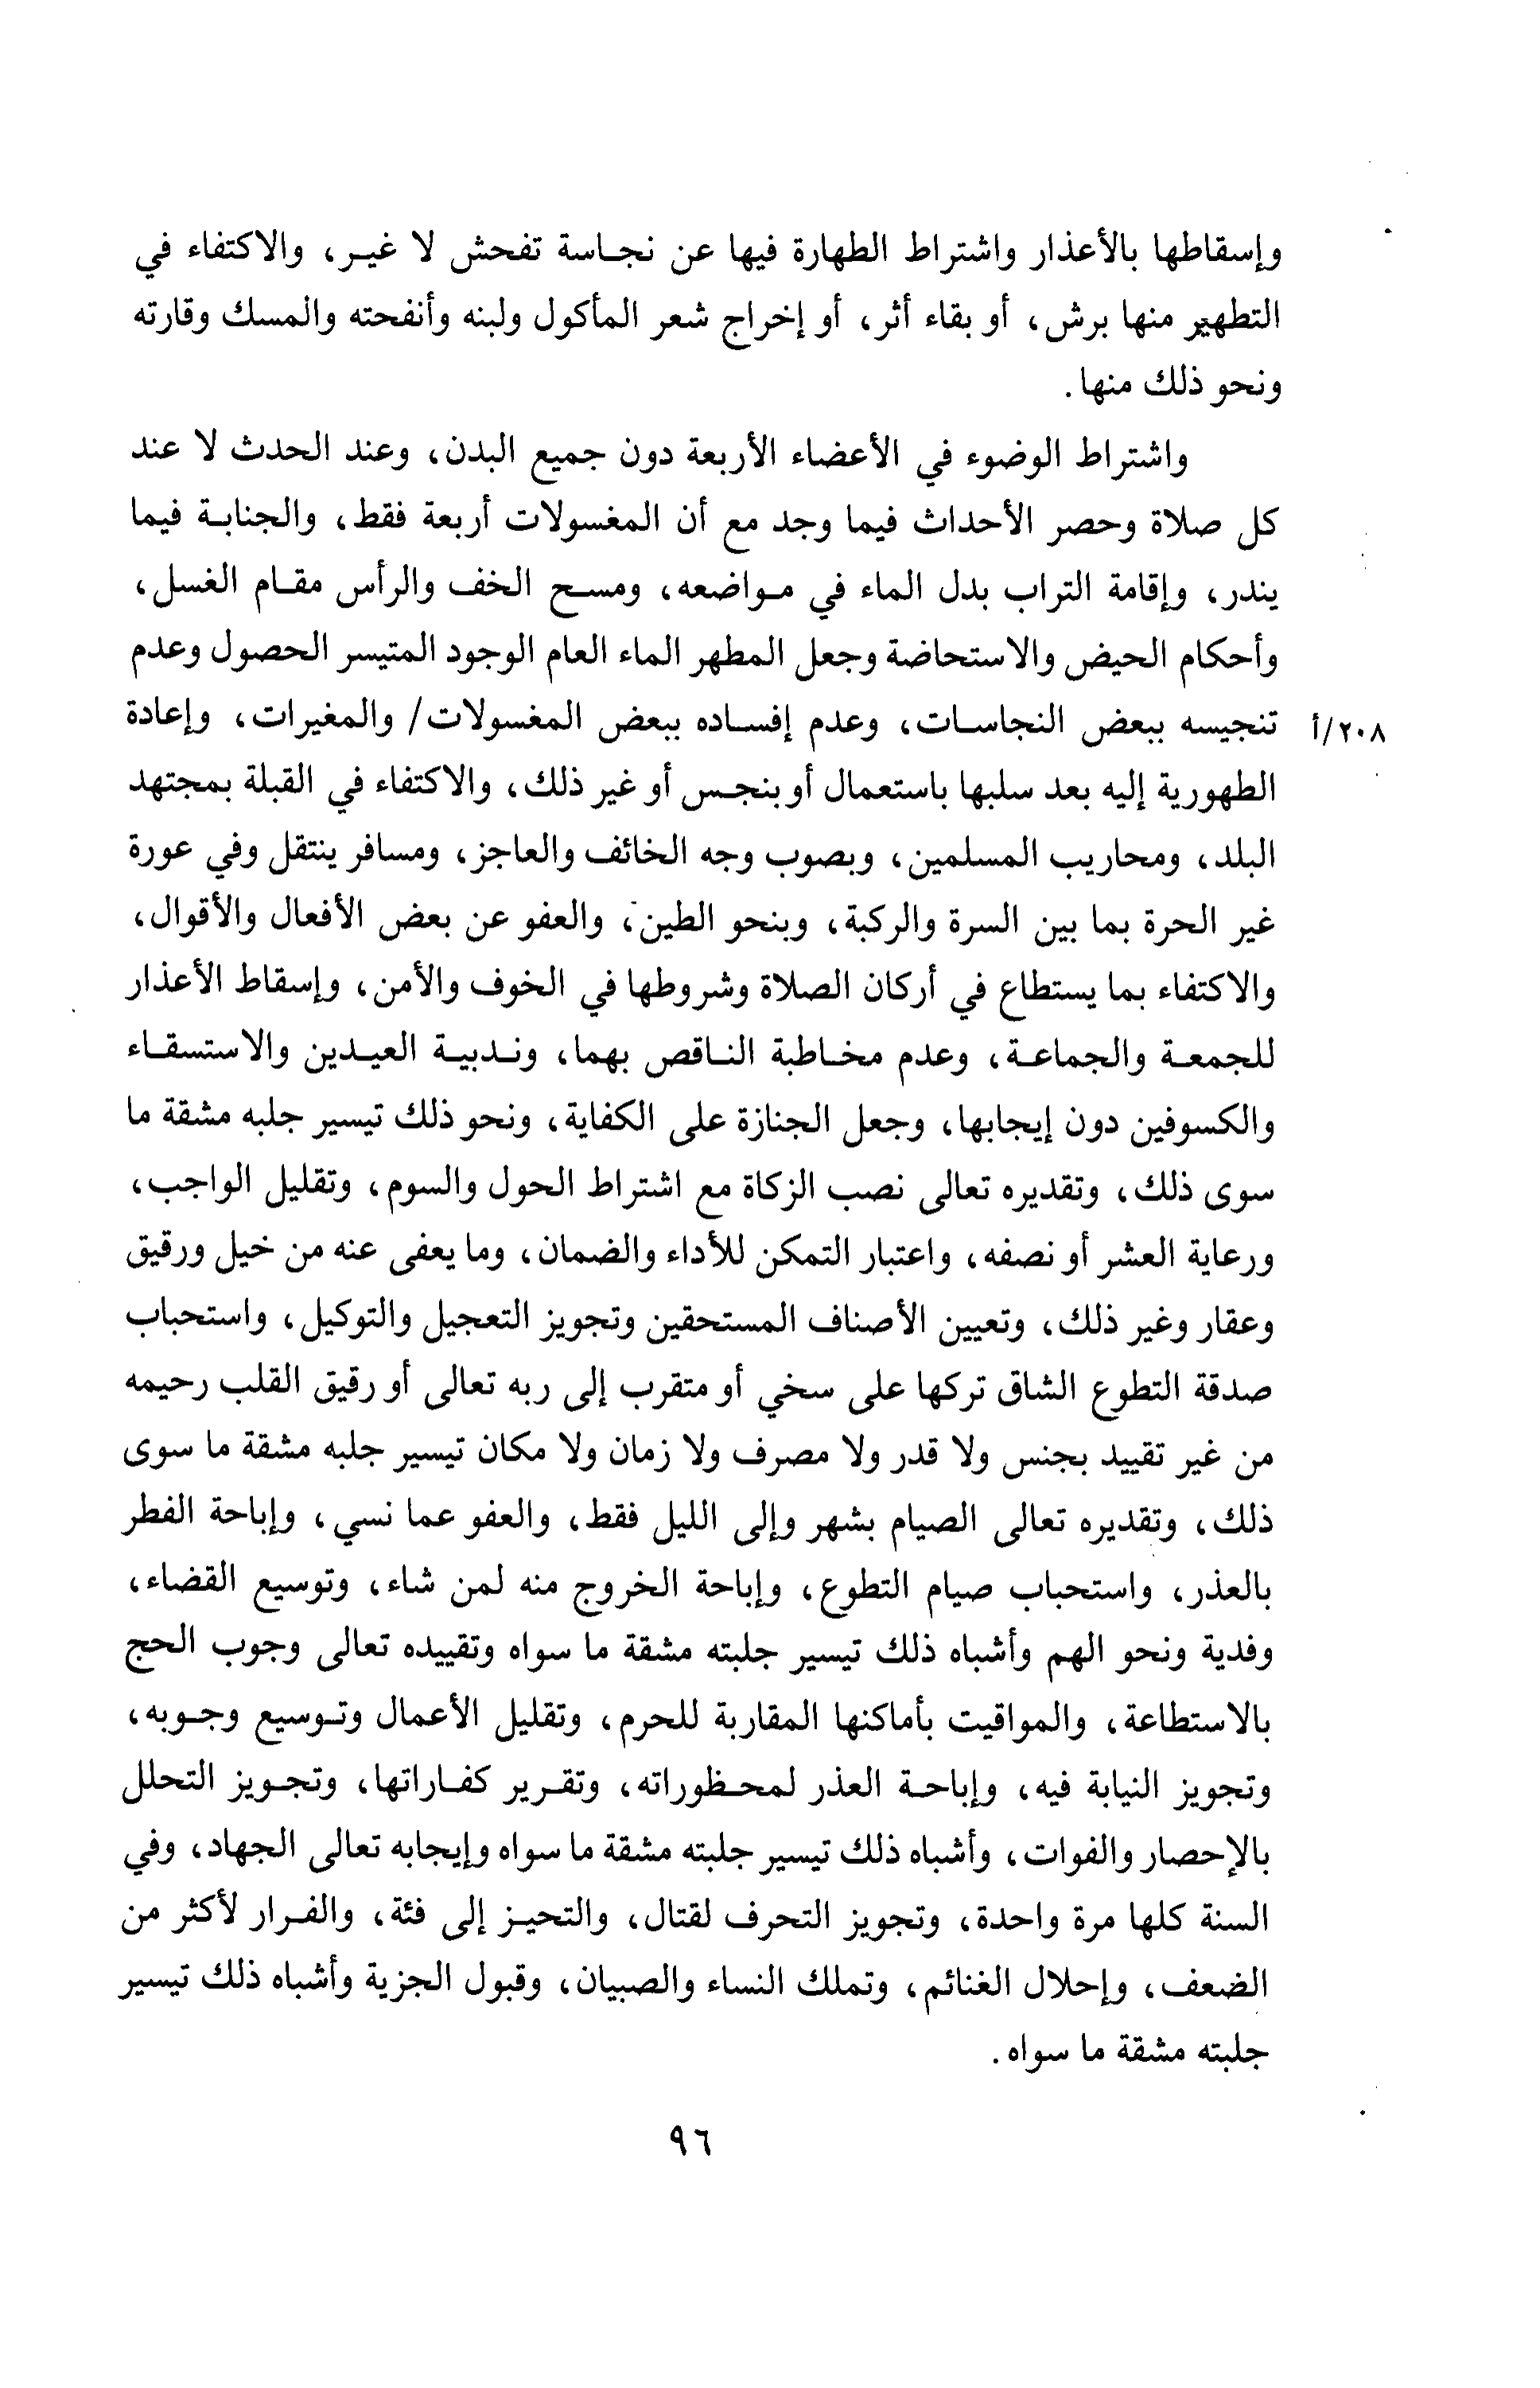 وإسقاطها بالأعذار واشتراط الطهارة فيها عن نجاسة تفحش لا غير، والاكتفاء في
التطهير منها برش، أو بقاء أثر، أو إخراج شعر المأكول ولبنه وأنفحته والمسك وقارته
ونحو ذلك منها.
واشتراط الوضوء في الأعضاء الأربعة دون جميع البدن، وعند الحدث لا عند
كل صلاة وحصر الأحداث فيما وجد مع أن المغسولات أربعة فقط، والجنابة فيما
يندر، وإقامة التراب بدل الماء في مواضعه، ومسح الخف والرأس مقام الغسل،
وأحكام الحيض والاستحاضة وجعل المطهر الماء العام الوجود المتيسر الحصول وعدم
٢٠٨/أ تنجيسه ببعض النجاسات، وعدم إفساده ببعض المغسولات/ والمغيرات، وإعادة
الطهورية إليه بعد سلبها باستعمال أو بنجس أو غير ذلك، والاكتفاء في القبلة بمجتهد
البلد، ومحاريب المسلمين، وبصوب وجه الخائف والعاجز، ومسافر ينتقل وفي عورة
غير الحرة بما بين السرة والركبة، وبنحو الطين، والعفو عن بعض الأفعال والأقوال،
والاكتفاء بما يستطاع في أركان الصلاة وشروطها في الخوف والأمن، وإسقاط الأعذار
للجمعة والجماعة، وعدم مخاطبة الناقص بهما، وندبية العيدين والاستسقاء
والكسوفين دون إيجابها، وجعل الجنازة على الكفاية، ونحو ذلك تيسير جلبه مشقة ما
سوى ذلك، وتقديره تعالى نصب الزكاة مع اشتراط الحول والسوم، وتقليل الواجب،
ورعاية العشر أو نصفه، واعتبار التمكن للأداء والضمان، وما يعفى عنه من خيل ورقيق
وعقار وغير ذلك، وتعيين الأصناف المستحقين وتجويز التعجيل والتوكيل، واستحباب
صدقة التطوع الشاق تركها على سخي أو متقرب إلى ربه تعالى أو رقيق القلب رحيمه
من غير تقييد بجنس ولا قدر ولا مصرف ولا زمان ولا مكان تيسير جلبه مشقة ما سوى
ذلك، وتقديره تعالى الصيام بشهر وإلى الليل فقط، والعفو عما نسي، وإباحة الفطر
بالعذر، واستحباب صيام التطوع، وإباحة الخروج منه لمن شاء، وتوسيع القضاء،
وفدية ونحو الهم وأشباه ذلك تيسير جلبته مشقة ما سواه وتقييده تعالى وجوب الحج
بالاستطاعة، والمواقيت بأماكنها المقاربة للحرم، وتقليل الأعمال وتوسيع وجوبه،
وتجويز النيابة فيه، وإباحة العذر لمحظوراته، وتقرير كفاراتها، وتجويز التحلل
بالإحصار والفوات، وأشباه ذلك تيسير جلبته مشقة ما سواه وإيجابه تعالى الجهاد، وفي
السنة كلها مرة واحدة، وتجويز التحرف لقتال، والتحيز إلى فئة، والفرار لأكثر من
الضعف، وإحلال الغنائم، وتملك النساء والصبيان، وقبول الجزية وأشباه ذلك تيسير
جلبته مشقة ما سواه.
٩٦